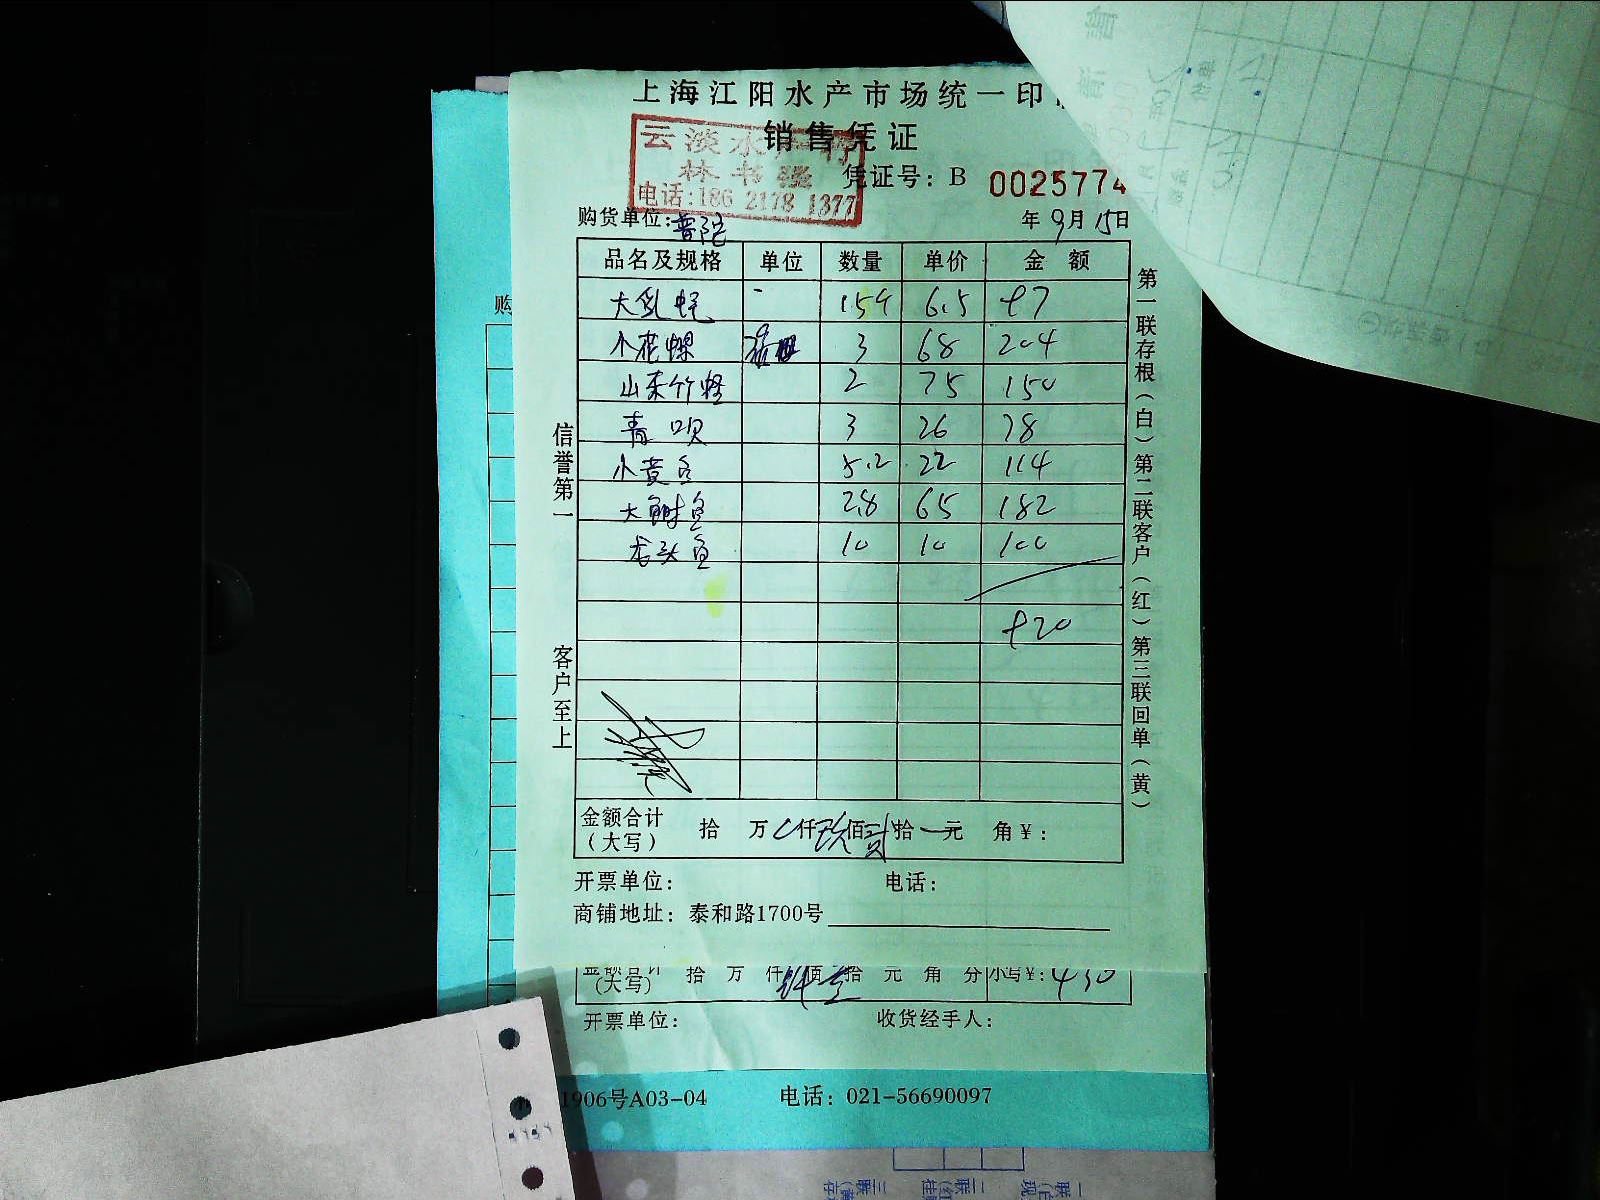 上海江阳水产市场统一印
销售凭证
云淡水产行
林书
电话:186 2178 1377
凭证号: B 0025774
购货单位: 普陀
年 9月 15日
品名及规格 单位 数量 单价 金额
大 15 6.5 97
小花螺 3 68 204
山东竹蛏 2 75 150
青呗 3 26 78
小黄鱼 5.2 22 114
大 鱼 2.8 65 182
龙头鱼 10 10 100
920
信誉第一
客户至上
第一联存根(白)第二联客户(红)第三联回单(黄)
金额合计
(大写) 拾 万 仟 玖佰 贰拾 元 角 ¥:
开票单位: 电话:
商铺地址: 泰和路1700号
金额合计
(大写) 拾 万 仟 佰 拾 元 角 分 小写¥: 430
开票单位: 收货经手人:
1906号A03-04 电话: 021-56690097
购